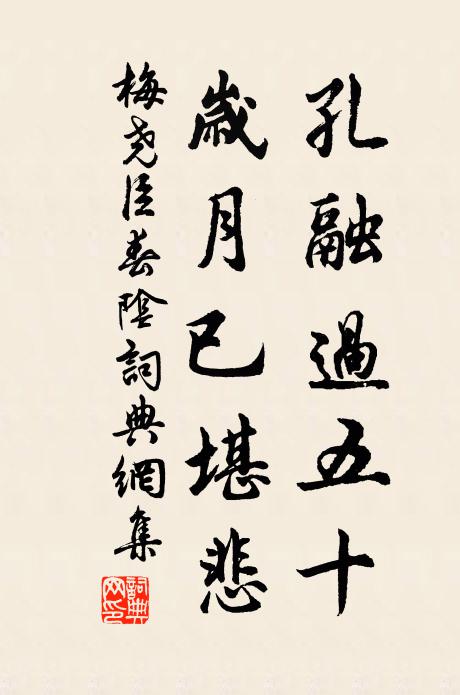 孔融過五十
歲月已堪悲
梅堯臣春陰詞典網集
詞典網印